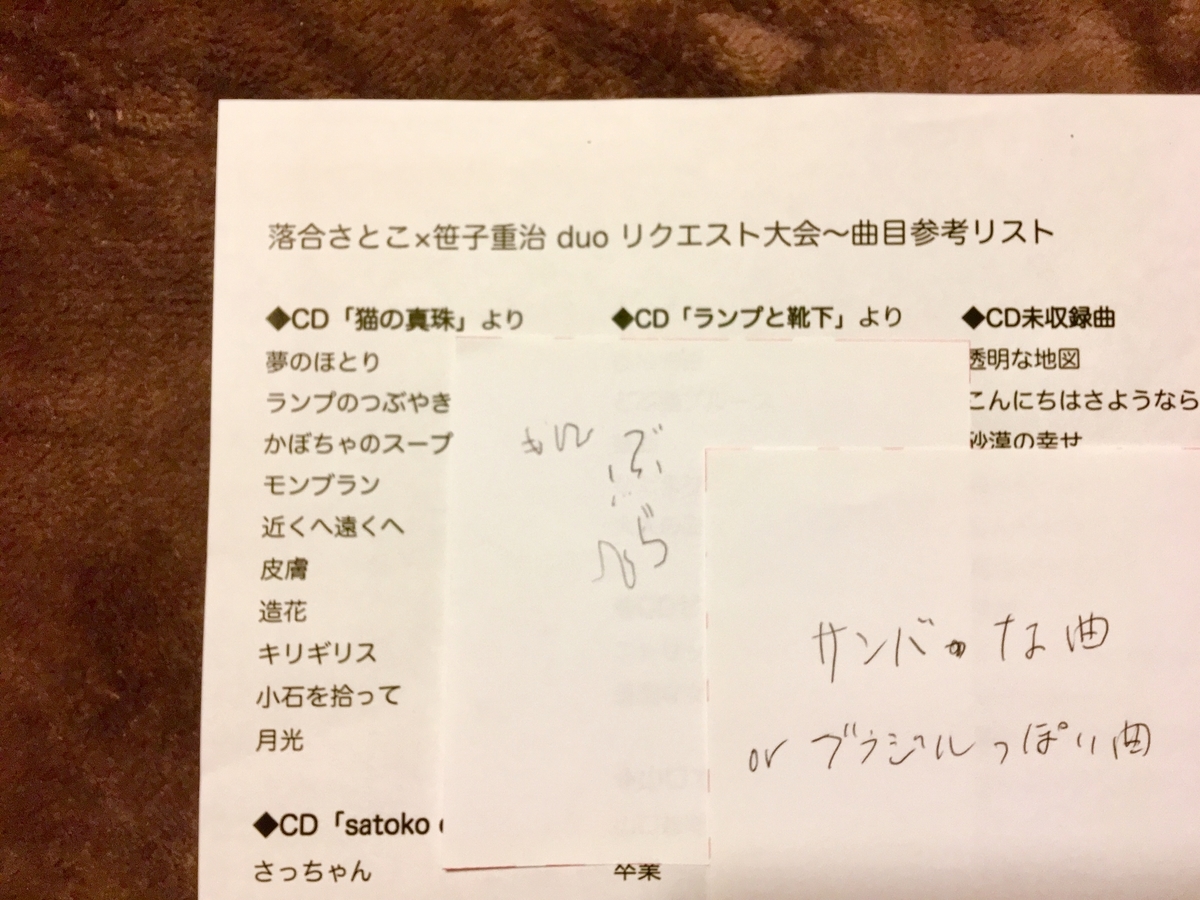 落合さとこ×笹子重治 duo リクエスト大会〜曲目参考リスト
◆CD「猫の真珠」より
夢のほとり
ランプのつぶやき
かぼちゃのスープ
モンブラン
近くへ遠くへ
皮膚
造花
キリギリス
小石を拾って
月光
◆CD「satoko
さっちゃん
◆CD「ランプと靴下」より
卒業
◆CD未収録曲
透明な地図
こんにちはさようなら
砂漠の幸せ
サンバな曲
or ブラジルっぽい曲